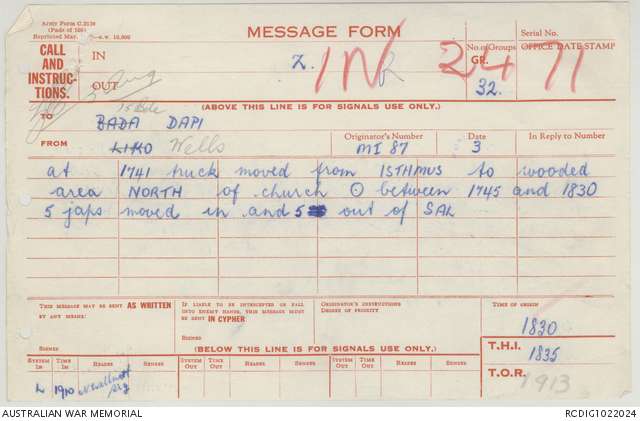 Army Form C.2128
(Pads of 100)
MESSAGE FORM
Serial No.
CALL AND INSTRUCTIONS.
IN
Z.
IN
No. of Groups
GR.
24
32.
OFFICE DATE STAMP
71
OUT
5 Aug
15 Bde
(ABOVE THIS LINE IS FOR SIGNALS USE ONLY.)
TO
BADA DAPI
FROM
LIKO Wells
Originator's Number
MI 87
Date
3
In Reply to Number
at 1741 truck moved from ISTHMUS to wooded
area NORTH of church ⊙ between 1745 and 1830
5 japs moved in and 5 out of SAL
THIS MESSAGE MAY BE SENT AS WRITTEN BY ANY MEANS.
SIGNED
IF LIABLE TO BE INTERCEPTED OR FALL INTO ENEMY HANDS, THIS MESSAGE MUST BE SENT IN CYPHER.
SIGNED
ORIGINATOR'S INSTRUCTIONS
DEGREE OF PRIORITY
TIME OF ORIGIN
1830
(BELOW THIS LINE IS FOR SIGNALS USE ONLY.)
T.H.I.
1835
SYSTEM IN TIME IN READER SENDER SYSTEM OUT TIME OUT READER SENDER SYSTEM OUT TIME OUT READER SENDER
T.O.R.
1913
L 1910
Sig
AUSTRALIAN WAR MEMORIAL
RCDIG1022024